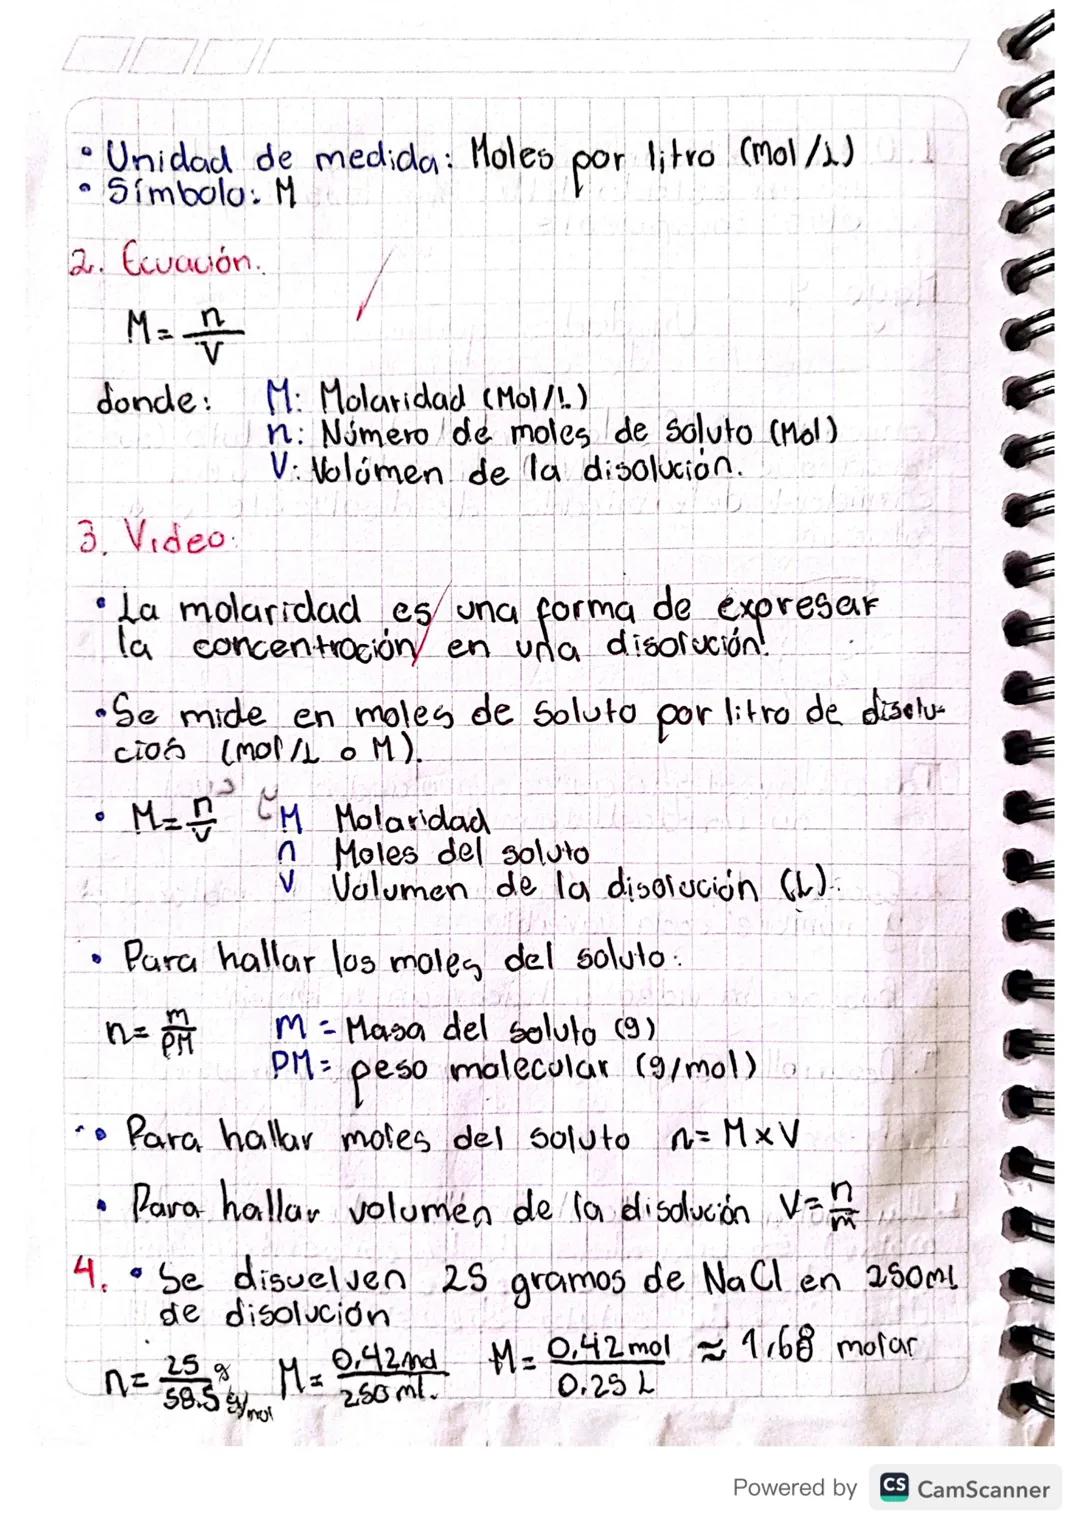 • Unidad de medida: Moles por litro (mol/L)
• Símbolo: M
2. Ecuación.
M = n/V
donde: M: Molaridad (Mol/L)
n: Número de moles de soluto (Mol)
V: Volúmen de la disolución.
3. Video:
• La molaridad es una forma de expresar
la concentración en una disolución.
• Se mide en moles de soluto por litro de disolu-
ción (mol/L o M).
• M = n/v M Molaridad
n Moles del soluto
V Volumen de la disolución (L).
• Para hallar los moles del soluto:
n = m/PM m = Masa del soluto (g)
PM = peso molecular (g/mol)
• Para hallar moles del soluto n = M x V
• Para hallar volumén de la disolución V = n/m
4. • Se disuelven 25 gramos de NaCl en 250ml
de disolución
n = 25 g/58.5 g/mol M = 0,42mol/250 ml. M = 0,42 mol/0,25 L ≈ 1,68 molar
Powered by CS CamScanner